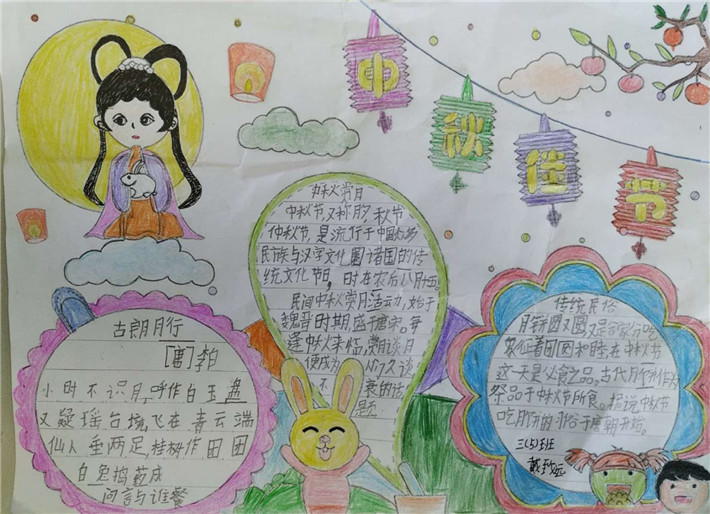 中秋佳节
古朗月行
[唐]李白
小时不识月,呼作白玉盘
又疑瑶台境,飞在青云端
仙人垂两足,桂树作团团
白兔捣药成
问言与谁餐
中秋赏月
中秋节,又称月夕,秋节
仲秋节,是流行于中国众多
民族与汉字文化圈诸国的传
统文化节日,时在农历八月十五
民间中秋赏月活动,始于
魏晋时期,盛于唐宋。每
逢中秋来临,赏月谈月
便成为人们久谈
不衰的话
题
传统民俗
月饼圆又圆又是合家分吃
象征着团圆和睦在中秋节
这一天是必食之品,古代月饼作为
祭品于中秋节所食。据说中秋节
吃月饼的习俗于唐朝开始。
三(5)班